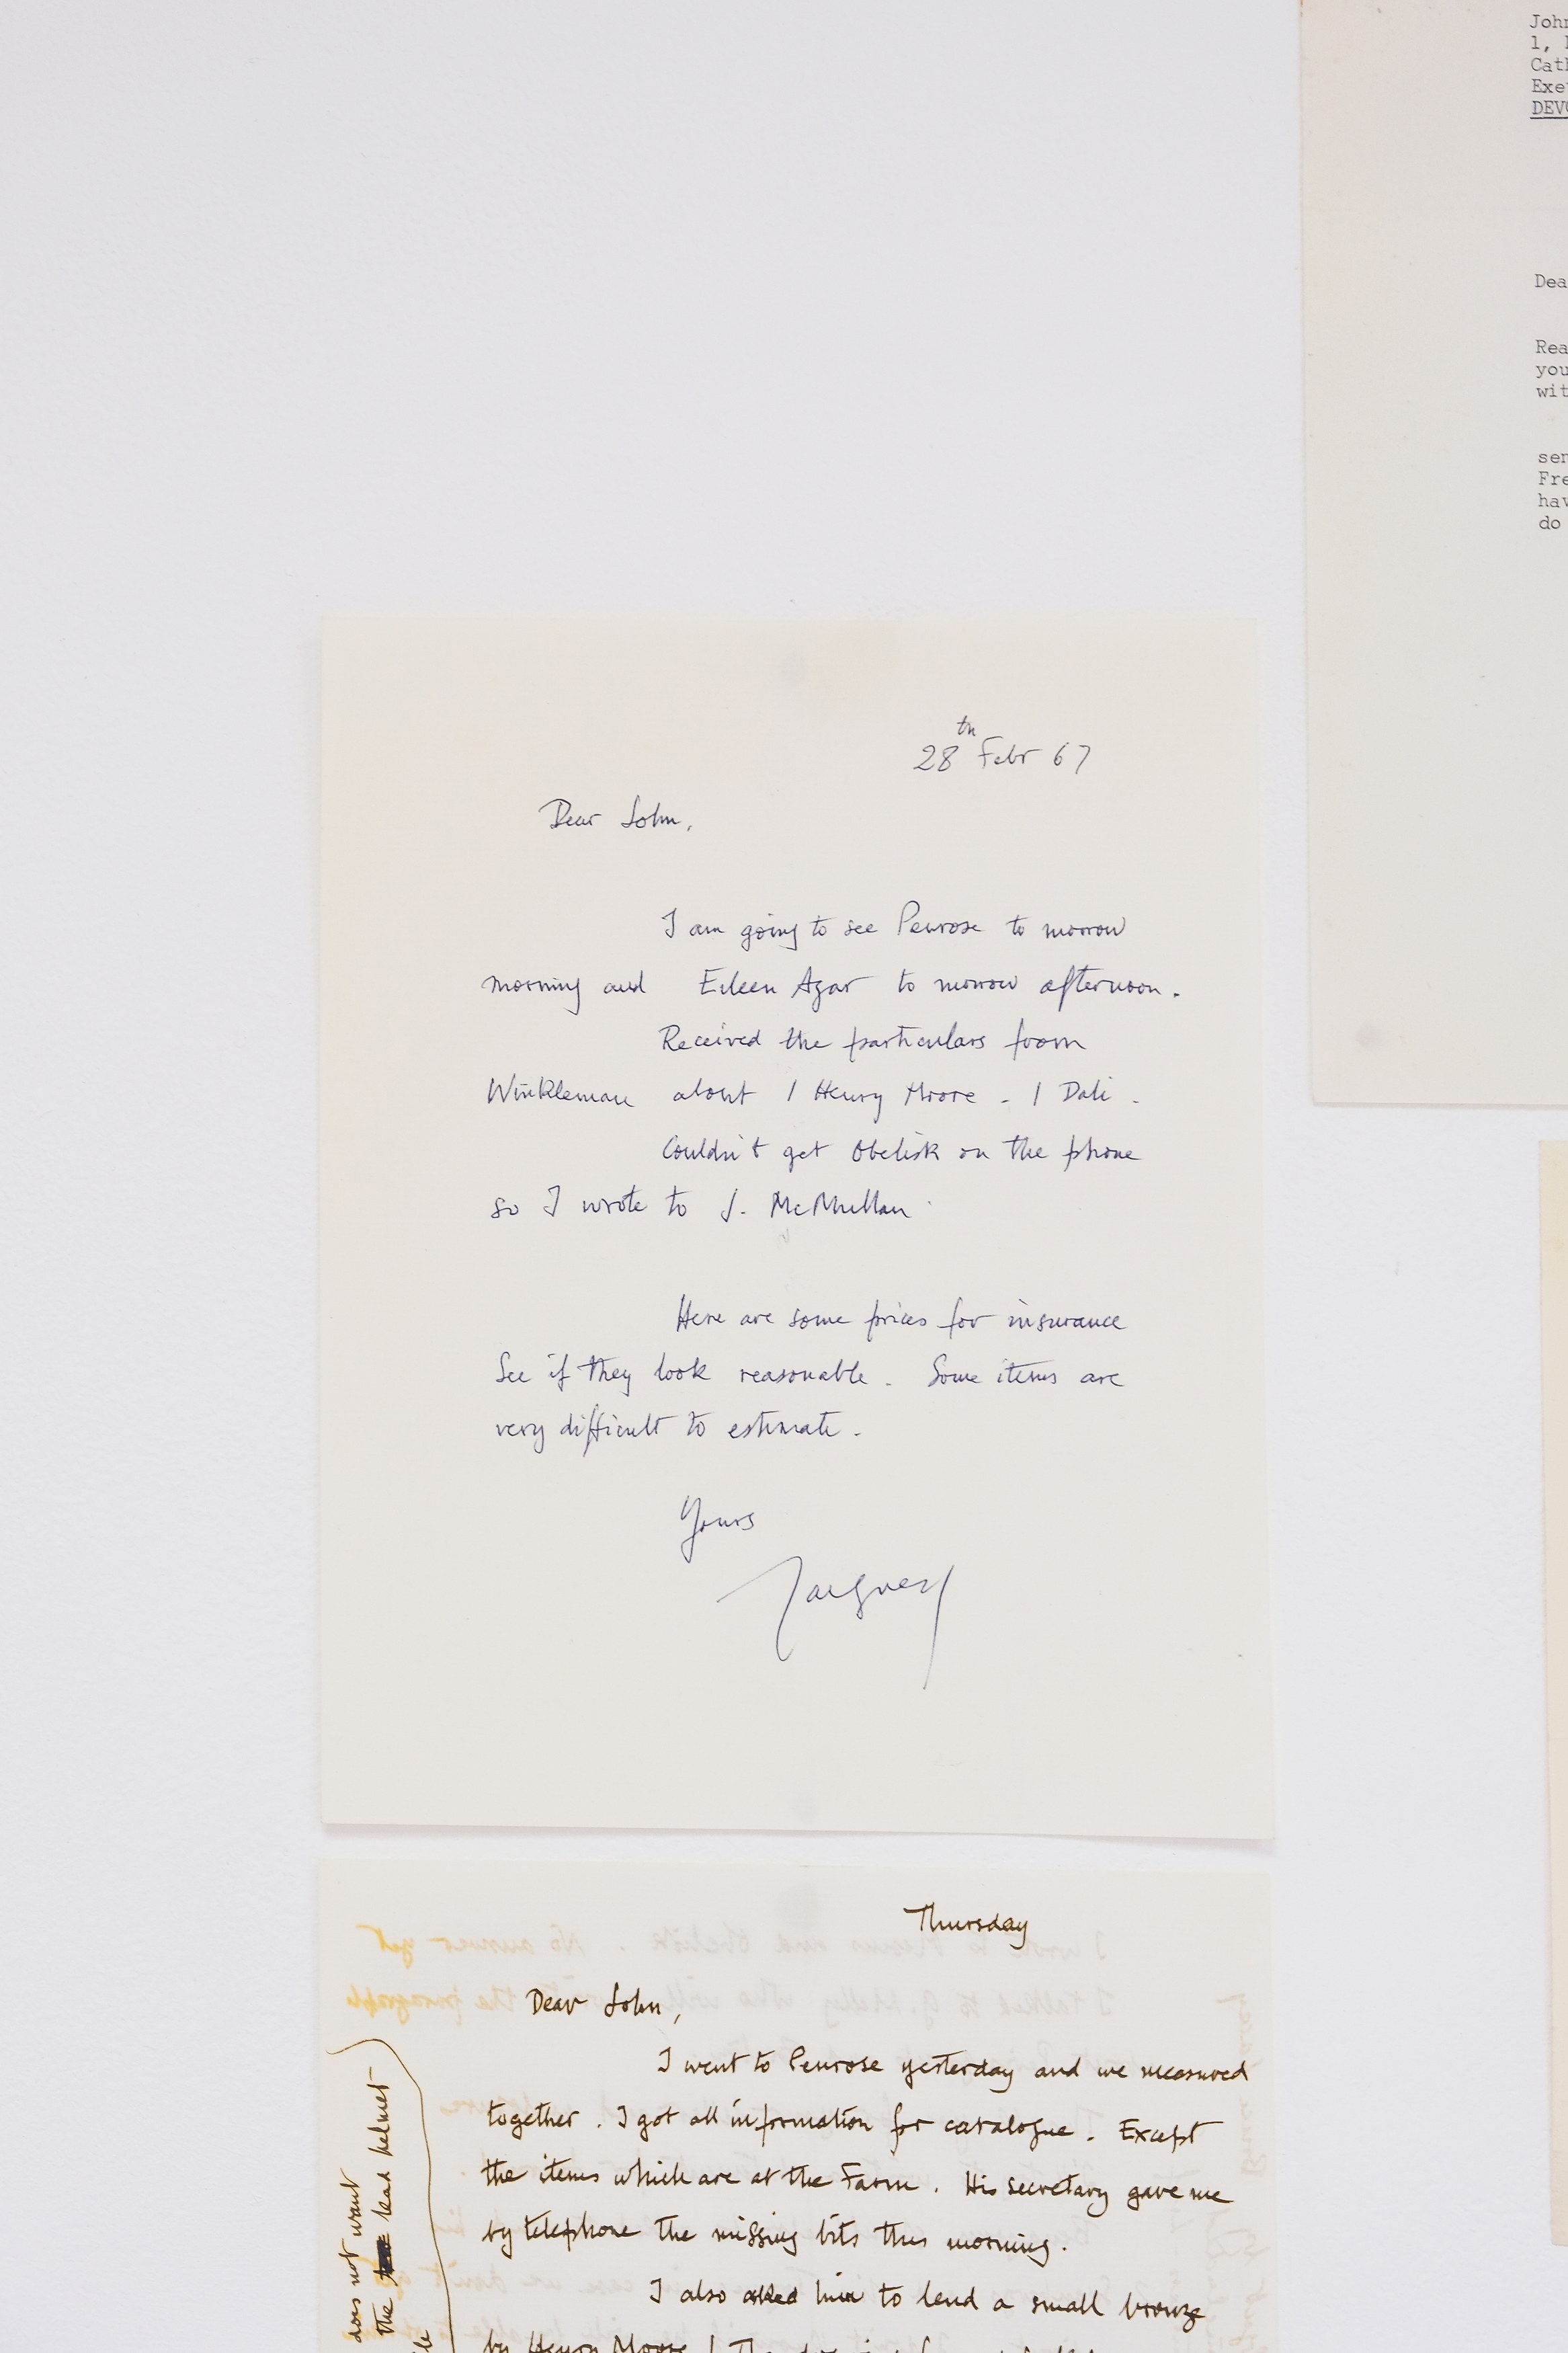 28th Febr 67
Dear John,
I am going to see Penrose to morrow
morning and Eileen Agar to morrow afternoon.
Received the particulars from
Winkleman about 1 Henry Moore - 1 Dali -
Couldn't get Obelisk on the phone
so I wrote to J. McMullan
Here are some prices for insurance
See if they look reasonable. Some items are
very difficult to estimate.
Yours
Jacques
Thursday
Dear John,
I went to Penrose yesterday and we measured
together. I got all information for catalogue. Except
the items which are at the Farm. His secretary gave me
by telephone the missing bits this morning.
I also asked him to lend a small bronze
by Henry Moore!
does not want
the lead helmet
John
1,
Cath
Exe
DEVO
Dea
Rea
you
wit
sen
Fre
hav
do